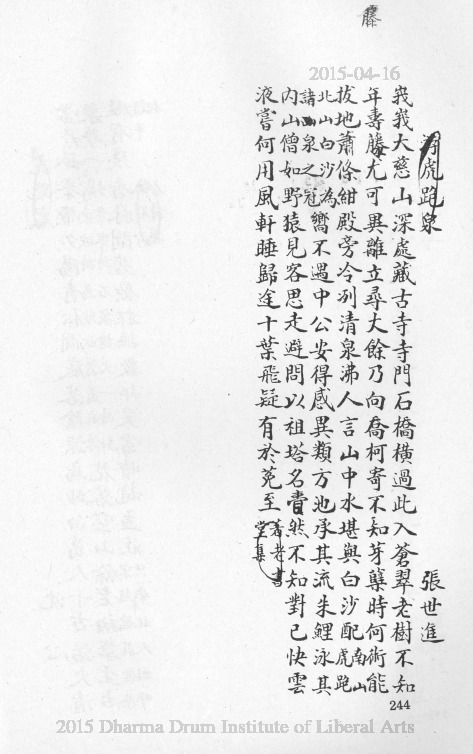 藤
2015-04-16
游虎跑泉 張世進
峩峩大慈山深處藏古寺寺門石橋橫過此入蒼翠老樹不知
年壽藤尤可異離立尋大餘乃向喬柯寄不知芽孽時何術能
拔地蕭條紺殿旁泠冽清泉沸人言山中水堪與白沙配南山虎跑
北山白沙為諸泉之冠嚮不遇中公安得感異類方池承其流朱鯉泳其
內山僧如野猿見客思走避問以祖塔名瞢然不知對已快雲
液嘗何用風軒睡歸途十葉飛疑有於菟至著老書堂集
244
2015 Dharma Drum Institute of Liberal Arts